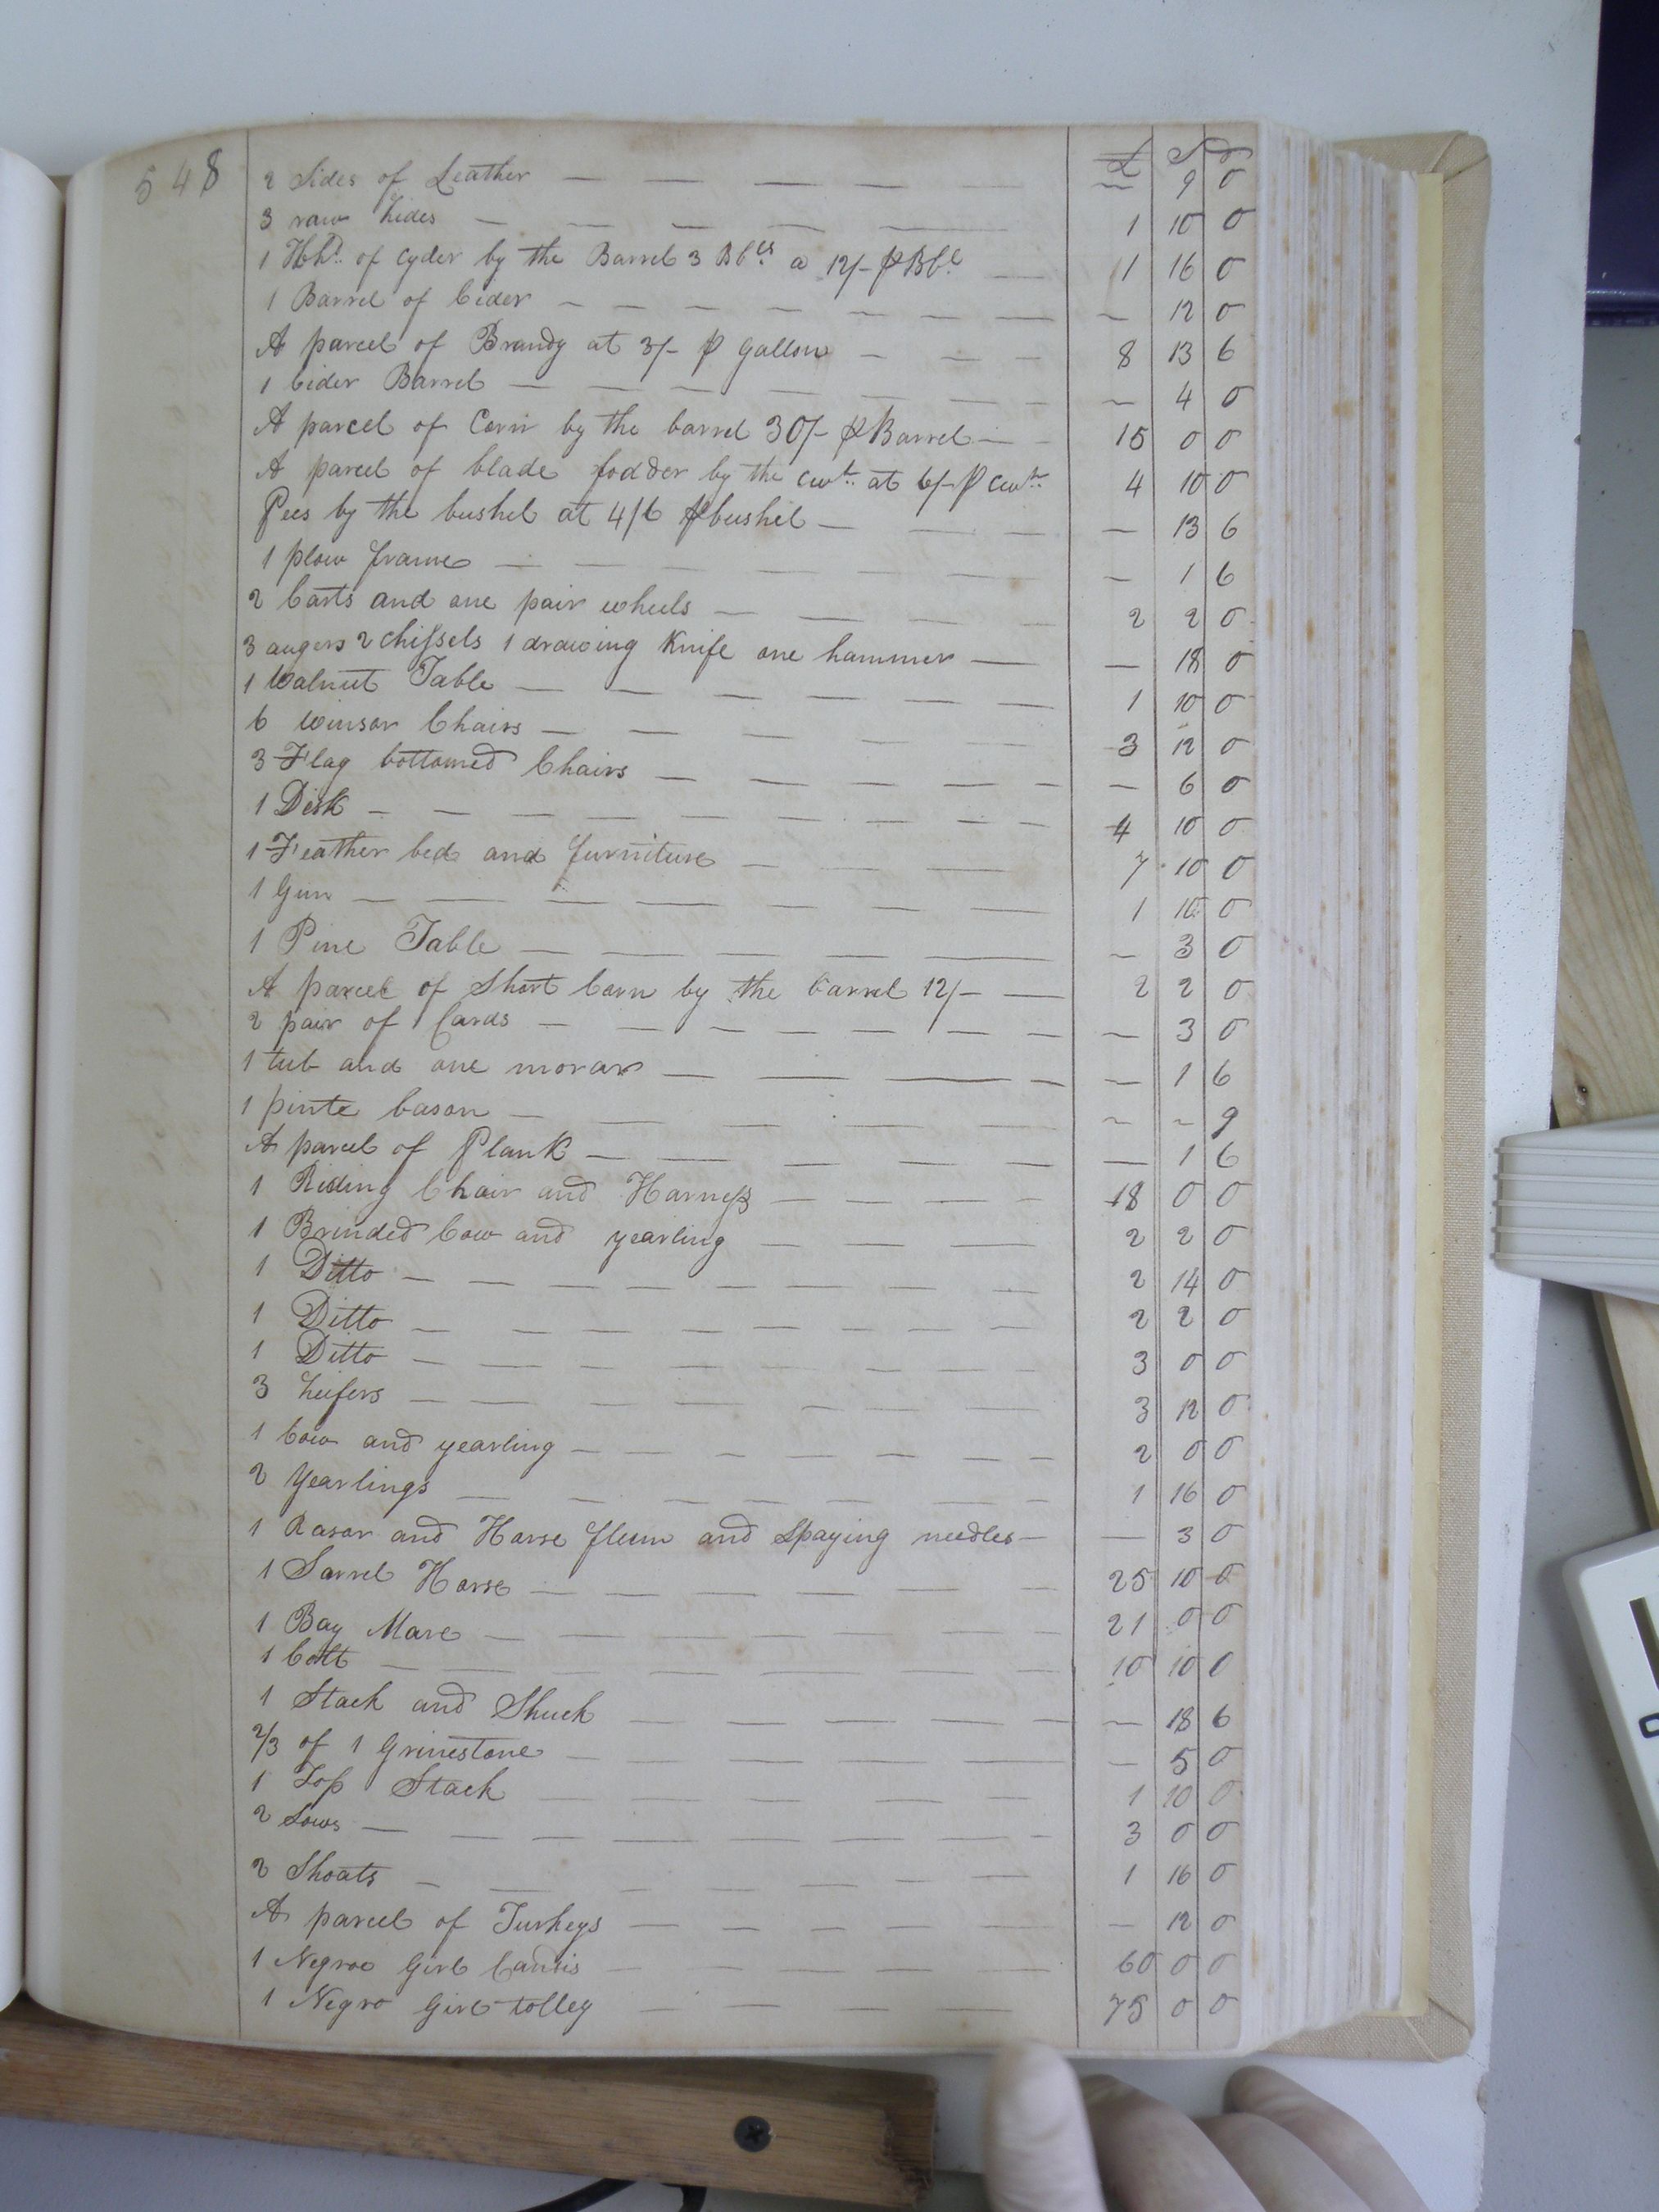 548
£ S d
2 Sides of Leather — — — — — — ~ 9 0
3 raw hides — — — — — 1 10 0
1 Hhd. of Cyder by the Barrel 3 Bbls. a 12/- ⅌ Bbl — 1 16 0
1 Barrel of Cider — — — — — — — ~ 12 0
A parcel of Brandy at 3/- ⅌ Gallon — — — 8 13 6
1 Cider Barrel — — — — — — — ~ 4 0
A parcel of Corn by the barrel 30/- ⅌ Barrel — — 15 0 0
A parcel of blade fodder by the cwt. at 6/- ⅌ cwt. 4 10 0
Pees by the bushel at 4/6 ⅌ bushel — — — — 13 6
1 plow frame — — — — — — — ~ 1 6
2 Carts and one pair wheels — — — — 2 2 0
3 augers 2 chissels 1 drawing Knife one hammer — — 18 0
1 Walnut Table — — — — — — — 1 10 0
6 winsor Chairs — — — — — — 3 12 0
3 Flag bottomed Chairs — — — — — — 6 0
1 Desk — — — — — — — — 4 10 0
1 Feather bed and furniture — — — — 7 10 0
1 Gun — — — — — — — — 1 10 0
1 Pine Table — — — — — — ~ 3 0
A parcel of Short Corn by the barrel 12/- — 2 2 0
2 pair of Cards — — — — — — — ~ 3 0
1 tub and one morar — — — — ~ 1 6
1 pinte bason — — — — — — ~ ~ 9
A parcel of Plank — — — — — — 1 6
1 Riding Chair and Harness — — — — 18 0 0
1 Brinded Cow and yearling — — — 2 2 0
1 Ditto — — — — — — — — 2 14 0
1 Ditto — — — — — — — — 2 2 0
1 Ditto — — — — — — — 3 0 0
3 heifers — — — — — — — 3 12 0
1 Cow and yearling — — — — — — 2 0 0
2 Yearlings — — — — — — — 1 16 0
1 Rasor and Horse fleum and Spaying needles — — 3 0
1 Sorrel Horse — — — — — — 25 10 0
1 Bay Mare — — — — — — 21 0 0
1 Colt — — — — — — — 10 10 0
1 Stack and Shuck — — — — — — ~ 18 6
2/3 of 1 Grinestone — — — — — — 5 0
1 Top Stack — — — — — — 1 10 0
2 Sows — — — — — — — — 3 0 0
2 Shoats — — — — — — — 1 16 0
A parcel of Turkeys — — — — — — 12 0
1 Negroe Girl Candis — — — — — 60 0 0
1 Negro Girl tolley — — — — 75 0 0